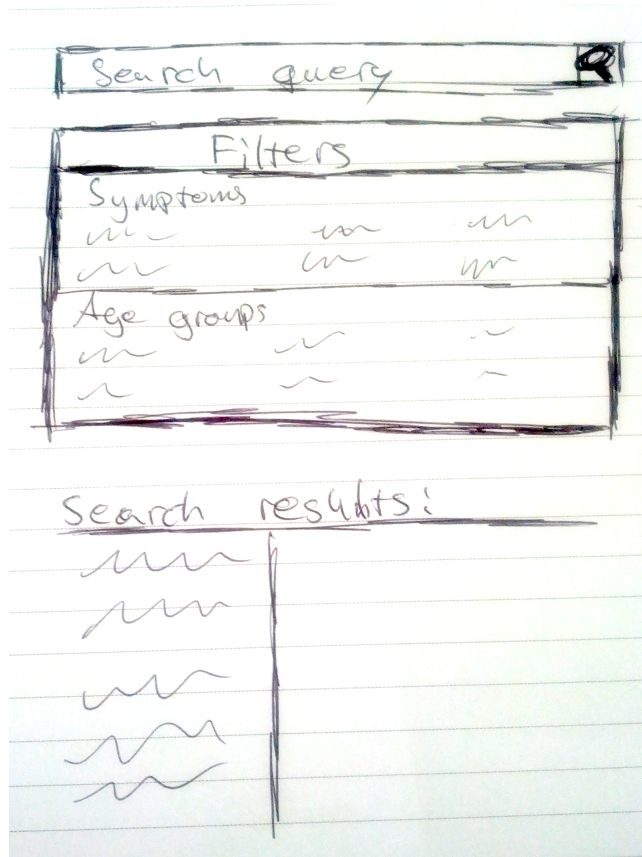 Search query
Filters
Symptoms
Age groups
Search results: